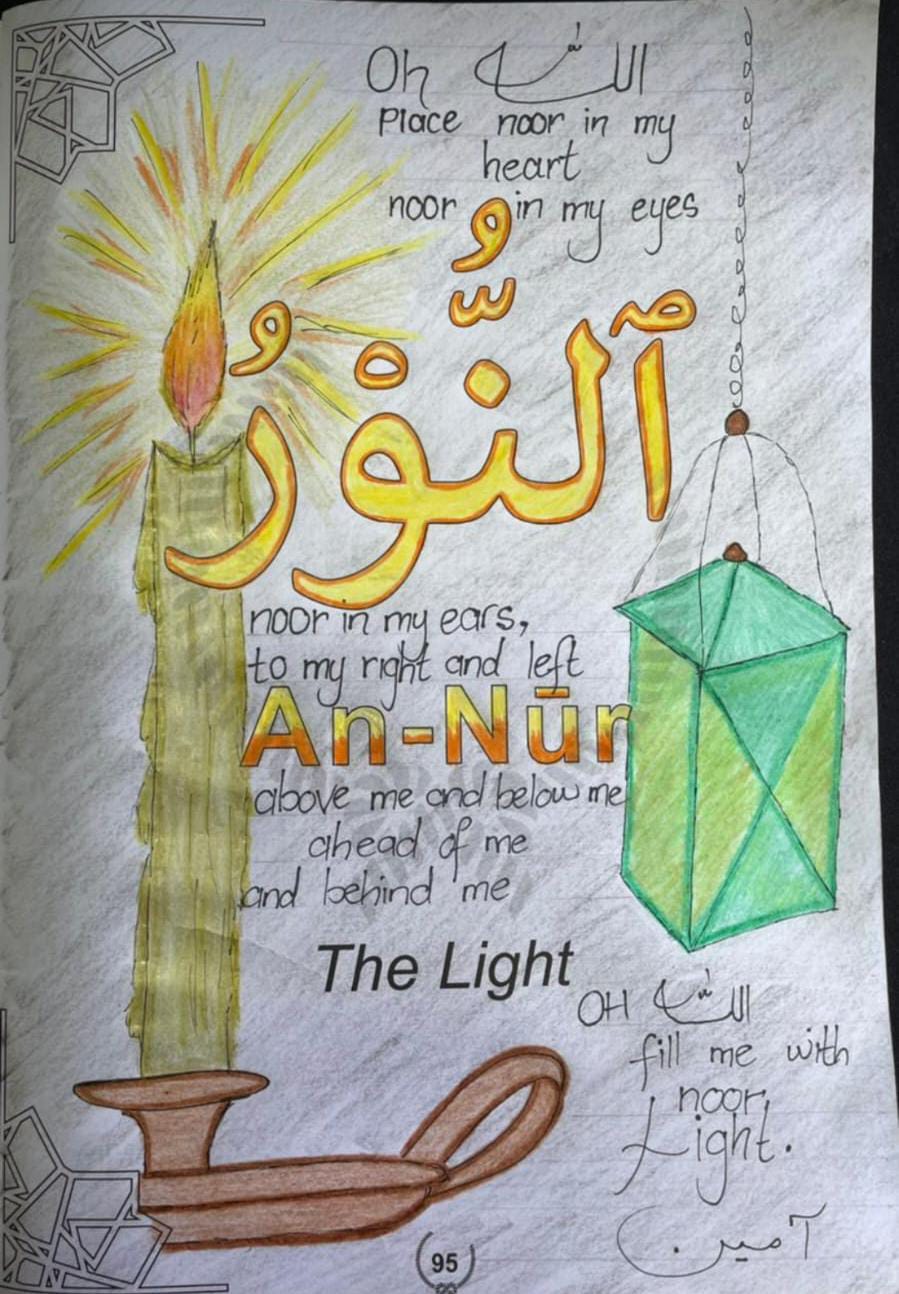 Oh اللّٰه
Place noor in my
heart
noor in my eyes
ٱلنُّوْرُ
noor in my ears,
to my right and left
An-Nūr
above me and below me
ahead of me
and behind me
The Light
OH اللّٰه
fill me with
noor
Light.
آمین
95